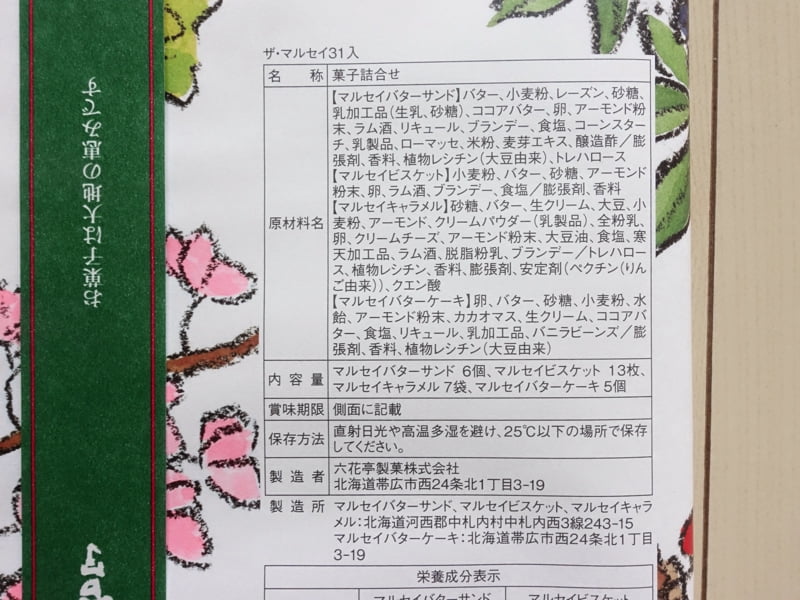 お菓子は大地の恵みです
ザ・マルセイ31入
名 称 菓子詰合せ
原材料名
【マルセイバターサンド】バター、小麦粉、レーズン、砂糖、
乳加工品(生乳、砂糖)、ココアバター、卵、アーモンド粉
末、ラム酒、リキュール、ブランデー、食塩、コーンスター
チ、乳製品、ローマッセ、米粉、麦芽エキス、醸造酢/膨
張剤、香料、植物レシチン(大豆由来)、トレハロース
【マルセイビスケット】小麦粉、バター、砂糖、アーモンド
粉末、卵、ラム酒、ブランデー、食塩/膨張剤、香料
【マルセイキャラメル】砂糖、バター、生クリーム、大豆、小
麦粉、アーモンド、クリームパウダー(乳製品)、全粉乳、
卵、クリームチーズ、アーモンド粉末、大豆油、食塩、寒
天加工品、ラム酒、脱脂粉乳、ブランデー/トレハロー
ス、植物レシチン、香料、膨張剤、安定剤(ペクチン(りん
ご由来))、クエン酸
【マルセイバターケーキ】卵、バター、砂糖、小麦粉、水
飴、アーモンド粉末、カカオマス、生クリーム、ココアバ
ター、食塩、リキュール、乳加工品、バニラビーンズ/膨
張剤、香料、植物レシチン(大豆由来)
内 容 量 マルセイバターサンド 6個、マルセイビスケット 13枚、
マルセイキャラメル 7袋、マルセイバターケーキ 5個
賞味期限 側面に記載
保存方法 直射日光や高温多湿を避け、25℃以下の場所で保存
してください。
製 造 者 六花亭製菓株式会社
北海道帯広市西24条北1丁目3-19
製 造 所 マルセイバターサンド、マルセイビスケット、マルセイキャラ
メル:北海道河西郡中札内村中札内西3線243-15
マルセイバターケーキ:北海道帯広市西24条北1丁目
3-19
栄養成分表示
マルセイバターサンド マルセイビスケット